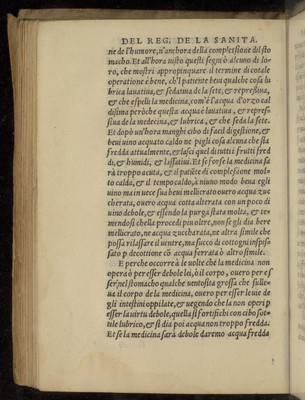 DEL REG. DE LA SANITA.
ne de l'humore, n'anchora della complessione del sto
macho. Et all'hora uisto questi segnò alcuno di lo-
ro, che mostri appropinquare il termine di cotale
operatione è bene, ch'l patiente beui qualche cosa lu
brica lauatiua, & sedatiua de la sete, & repressiua,
& che espelli la medicina, com'è l'acqua d'orzo cal
dissima peròche questa acqua è lauatiua, & repres-
siua de la medecina, & lubrica, & che seda la sete.
Et dopò un'hora manghi cibo di facil digestione, &
beui uino acquato caldo ne pigli cosa alcuna che sia
fredda attualmente, & lasci quel dì tutti i frutti fred
di, & humidi, & lassatiui. Et se forse la medicina sa
rà troppo acuta, & il patiẽte di complessione mol-
to calda, & il tempo caldo, à niuno modo beua egli
uino ma in uece sua beui mellicrato ouero acqua zuc
cherata, ouero acqua cotta alterata con un poco di
uino debole, & essendo la purga stata molta, & te-
mendosi che'lla procedi piu oltre, non se gli dia bere
mellicrato, ne acqua zuccherata, ne altra simile che
possa rilassare il uentre, ma succo di cottogni inspis-
sato p decottione cõ acqua ferrata ò altro simile.
E perche occorrerà le uolte che la medicina non
operò per esser debole lei, ò il corpo, ouero per es
ser nel stomacho qualche uentosità grossa che sulle-
ua il corpo de la medicina, ouero per esser le uie de
gli intestini oppilate, & uegendo che la non operi p
esser la uirtu debole, quella si fortifichi con cibo sot-
tile lubrico, & si dia poi acqua non troppo fredda.
Et se la medicina sarà debole daremo acqua fredda